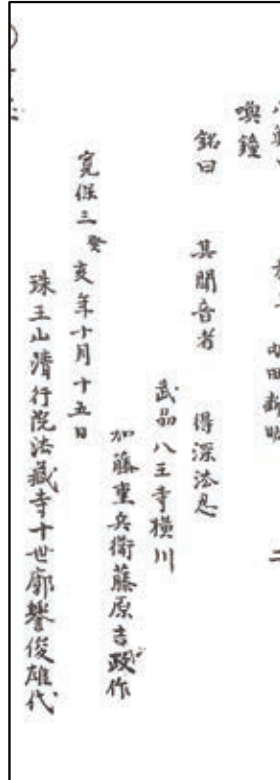 喚鐘
銘曰 其聞音者 得深法忍
武品八王寺横川
加藤重兵衛藤原吉政作
寛保三癸亥年十月十五日
珠王山清行院法藏寺十世廓譽俊雄代